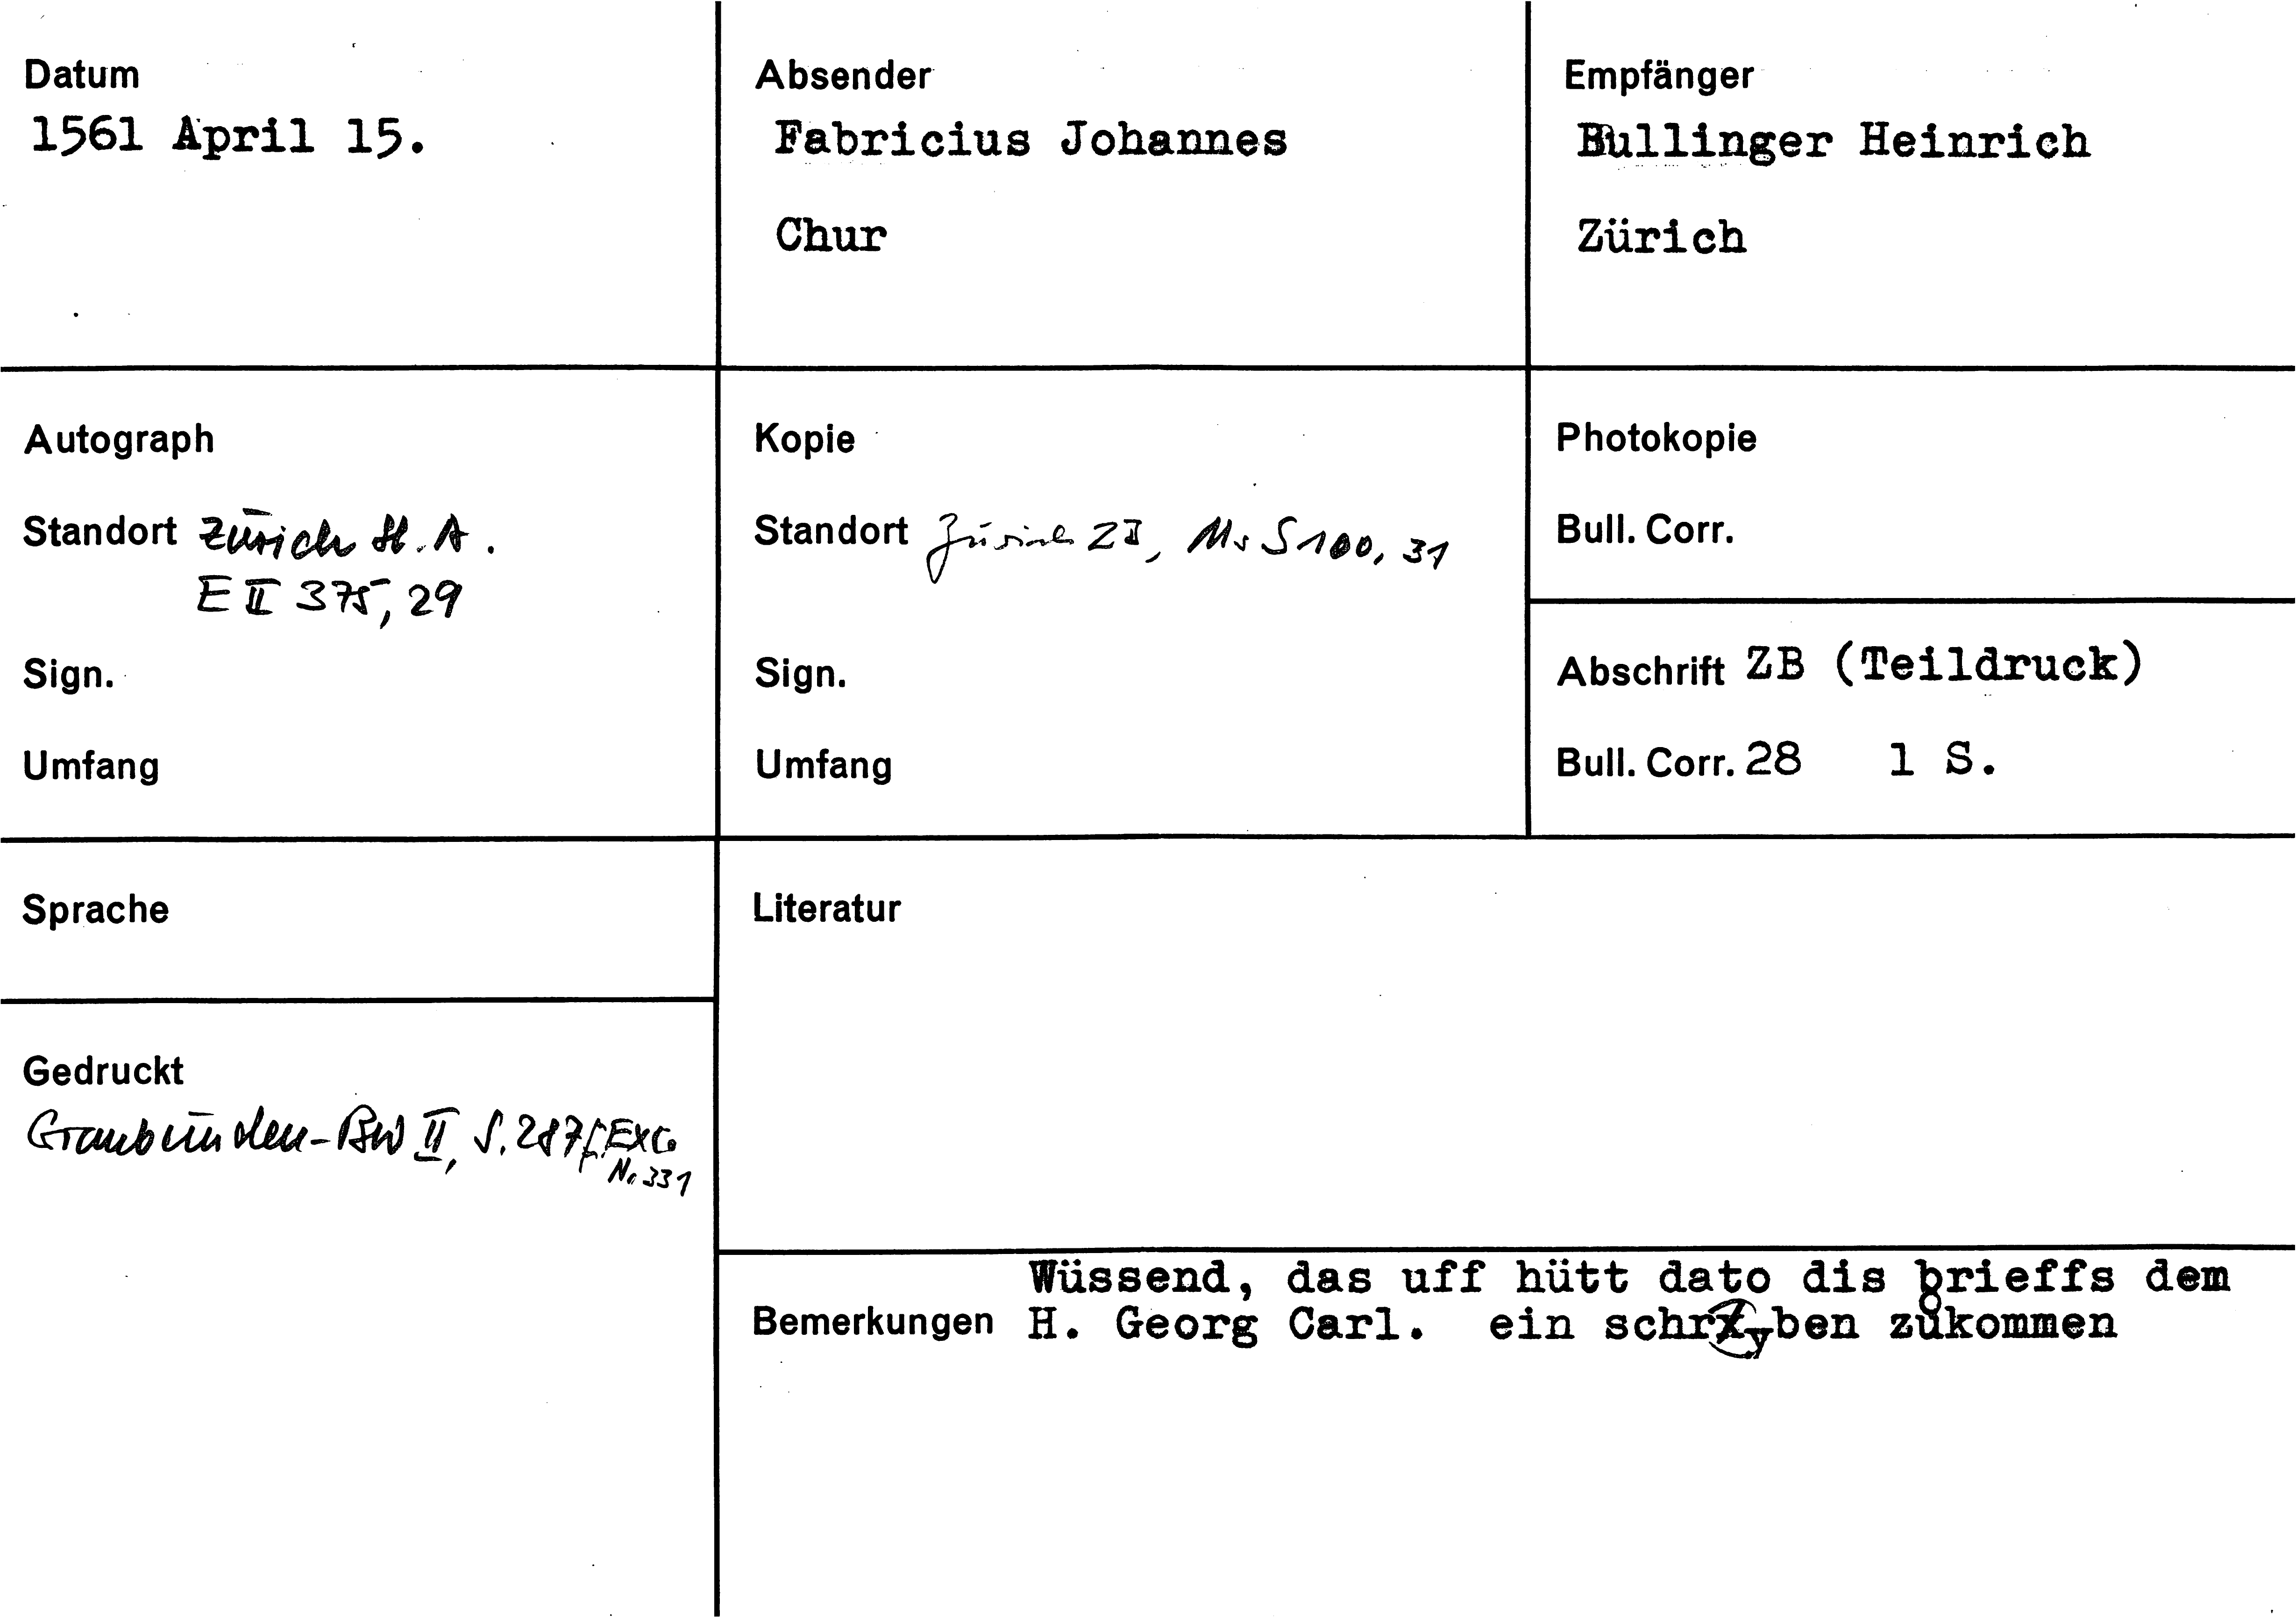 Datum
1561 April 15.
Absender
Fabricius Johannes
Chur
Empfänger
Bullinger Heinrich
Zürich
Autograph
Standort Zürich St. A.
E II 375, 29
Sign.
Umfang
Kopie
Standort Zürich ZB, Ms S 100, 31
Sign.
Umfang
Photokopie
Bull. Corr.
Abschrift ZB (Teildruck)
Bull. Corr. 28 1 S.
Sprache
Literatur
Gedruckt
Graubünden-BW II, S. 287f.
Nr. 331
Wüssend, das uff hütt dato dis brieffs dem
Bemerkungen H. Georg Carl. ein schryben zůkommen